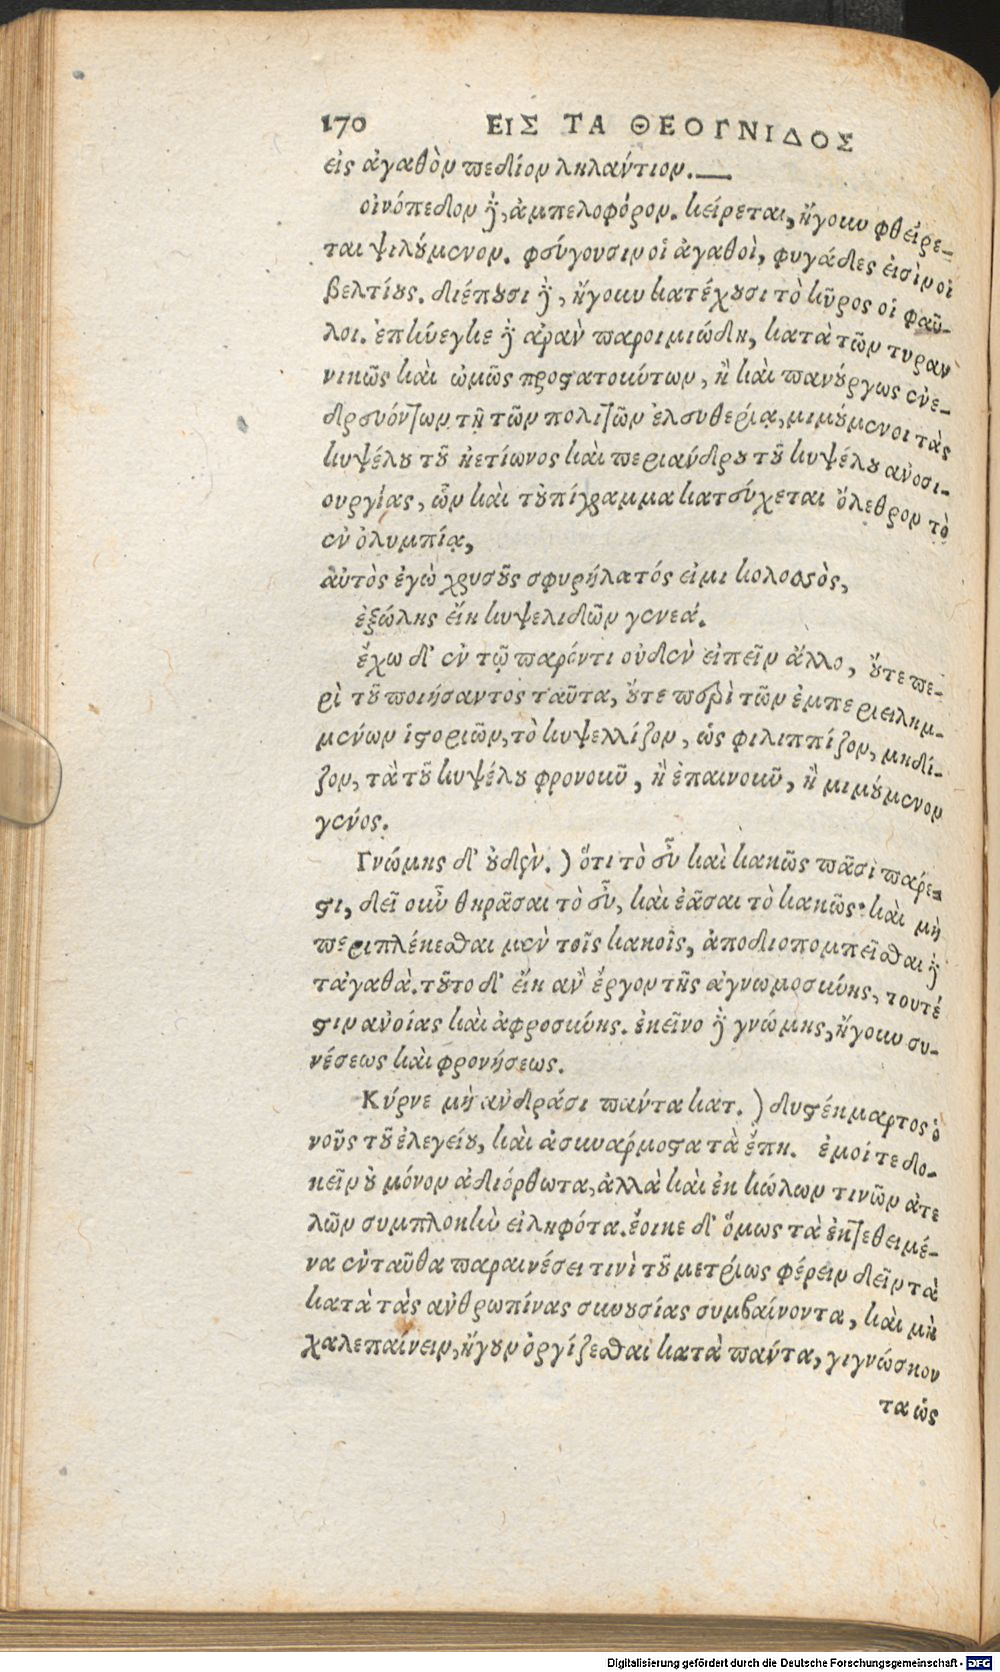 170 ΕΙΣ ΤΑ ΘΕΟΓΝΙΔΟΣ
εἰς ἀγαθὸν πεδίον ληλάντιον.—
οἰνόπεδον ᾖ, ἀμπελοφόρον. κείρεται, ἤγουν φθείρε-
ται ψιλούμενον. φεύγουσιν οἱ ἀγαθοὶ, φυγάδες εἰσὶν οἱ
βελτίους. διέπουσι ᾖ, ἤγουν κατέχουσι τὸ κῦρος οἱ φαῦ-
λοι. ἐπλύεγκε ᾖ ἀρὰν παροιμιώδη, κατὰ τῶν τυραν
νικῶς καὶ ὠμῶς προστατούντων, ἢ καὶ πανούργως ἐνε-
δρευόντων τῇ τῶν πολιτῶν ἐλευθερίᾳ, μιμούμενοι τὰς
κυψέλου τοῦ ἠετίωνος καὶ περιάνδρου τοῦ κυψέλου ἀνοσι-
ουργίας, ὧν καὶ τοὐπίγραμμα κατεύχεται ὄλεθρον τὸ
ἐν ὀλυμπίᾳ,
αὐτὸς ἐγὼ χρυσοῦς σφυρήλατός εἰμι κολοσσὸς,
ἐξώλης εἴη κυψελιδῶν γενεά.
ἔχω δ' ἐν τῷ παρόντι οὐδὲν εἰπεῖν ἄλλο, οὔτε πε-
ρὶ τοῦ ποιήσαντος ταῦτα, οὔτε περὶ τῶν ἐμπεριειλημ-
μένων ἱστοριῶν, τὸ κυψελλίζον, ὡς φιλιππίζον, μηδί-
ζον, τὰ τοῦ κυψέλου φρονοῦν, ἢ ἐπαινοῦν, ἢ μιμούμενον
γένος.
Γνώμης δ' οὐδὲν.) ὅτι τὸ εὖ καὶ κακῶς πᾶσὶ πάρε-
στι, δεῖ οὖν θηρᾶσαι τὸ εὖ, καὶ ἐᾶσαι τὸ κακῶς· καὶ μὴ
περιπλέκεσθαι μὲν τοῖς κακοῖς, ἀποδιοπομπεῖσθαι ᾖ
τἀγαθὰ. τοῦτο δ' εἴη ἂν ἔργον τῆς ἀγνωμοσύνης, τουτέ
στιν ἀνοίας καὶ ἀφροσύνης. ἐκεῖνο ᾖ γνώμης, ἤγουν συ-
νέσεως καὶ φρονήσεως.
Κύρνε μὴ ἀνδράσι πάντα κατ.) δυστέκμαρτος ὁ
νοῦς τοῦ ἐλεγείου, καὶ ἀσυνάρμοστα τὰ ἔπη. ἐμοί τε δο-
κεῖν οὐ μόνον ἀδιόρθωτα, ἀλλὰ καὶ ἐκ κώλων τινῶν ἀτε
λῶν συμπλοκὴν εἰληφότα. ἔοικε δ' ὅμως τὰ ἐκτεθειμέ-
να ἐνταῦθα παραινέσει τινὶ τοῦ μετρίως φέρειν δεῖν τὰ
κατὰ τὰς ἀνθρωπίνας συνουσίας συμβαίνοντα, καὶ μὴ
χαλεπαίνειν, ἤγουν ὀργίζεσθαι κατὰ πάντα, γιγνώσκον
τα ὡς
Digitalisierung gefördert durch die Deutsche Forschungsgemeinschaft - DFG